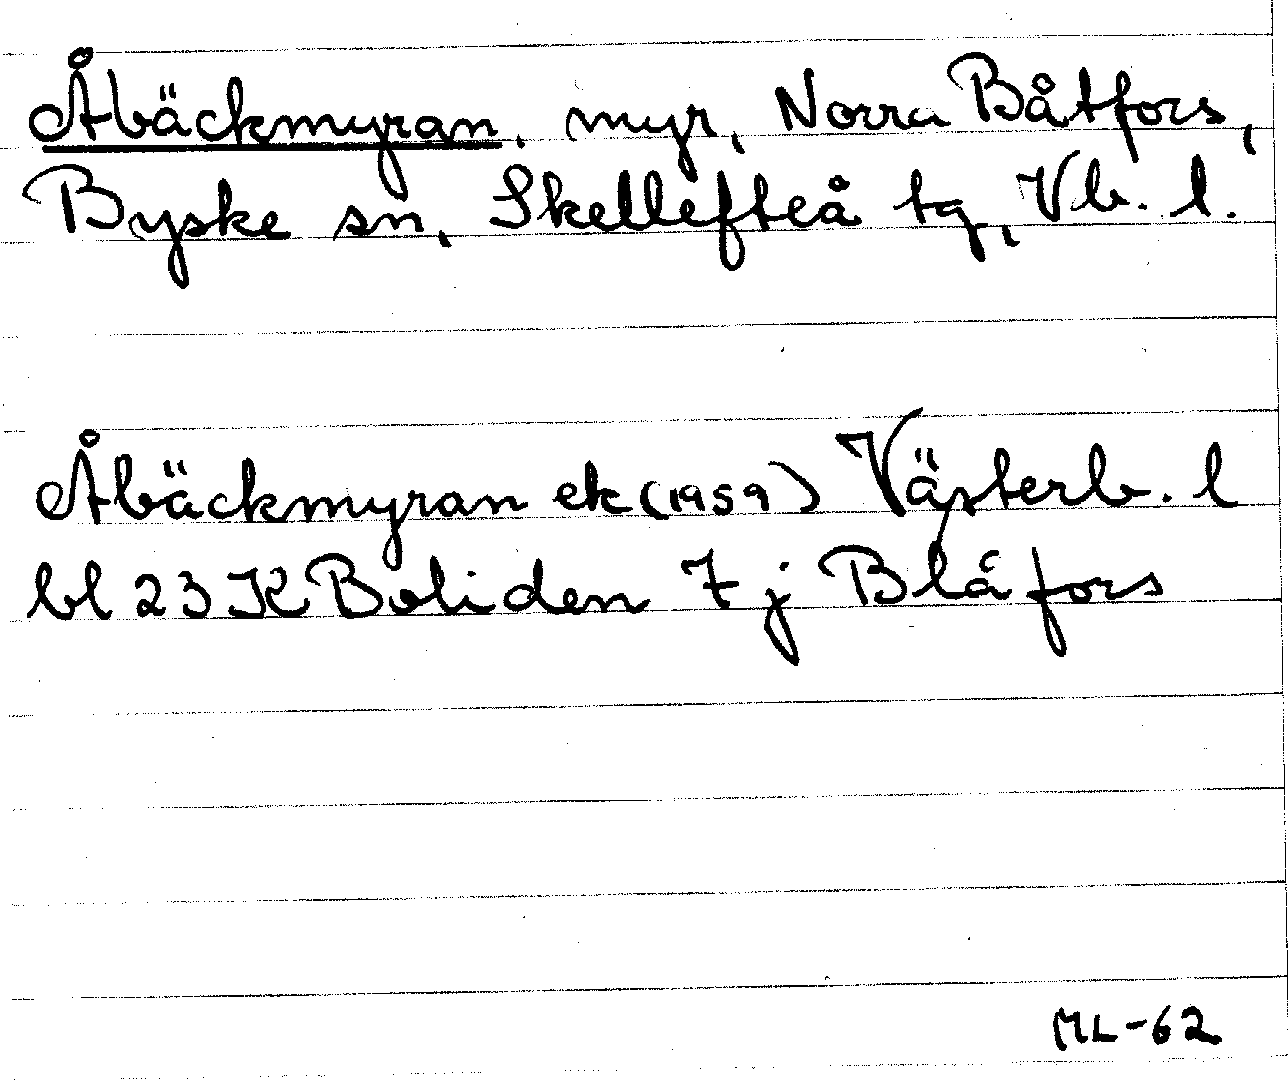 Åbäckmyran, myr, Norra Båtfors,
Byske sn, Skellefteå tg, Vb. l.
Åbäckmyran ek (1959) Västerb. l
bl 23 K Boliden 7 j Blåfors
ML-62